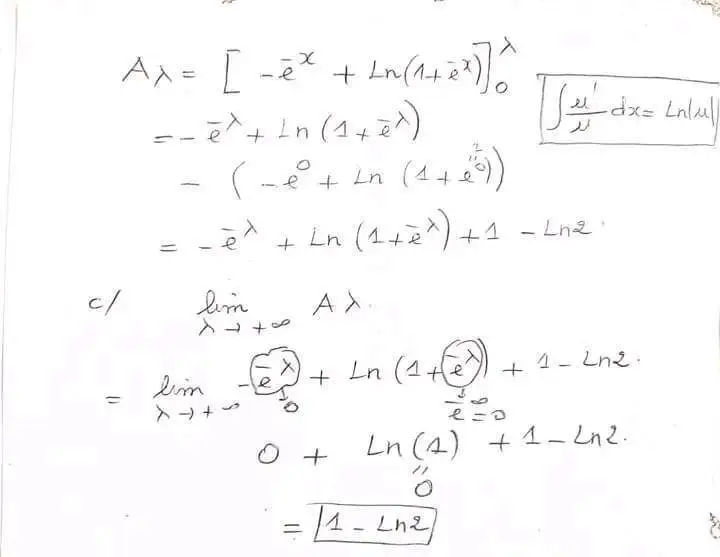 Aλ = [ -e^-x + Ln(1+e^-x) ]_0^λ
∫ u'/u dx = Ln|u|
= -e^-λ + Ln (1+e^-λ)
- ( -e^0 + Ln (1+e^-0))
= -e^-λ + Ln (1+e^-λ) +1 - Ln2
c/ lim Aλ.
λ→+∞
= lim -e^-λ + Ln (1+e^-λ) + 1 - Ln2.
λ→+∞ ↓ 0 ↓ e^-∞ = 0
0 + Ln(1) + 1 - Ln2.
"
0
= 1 - Ln2